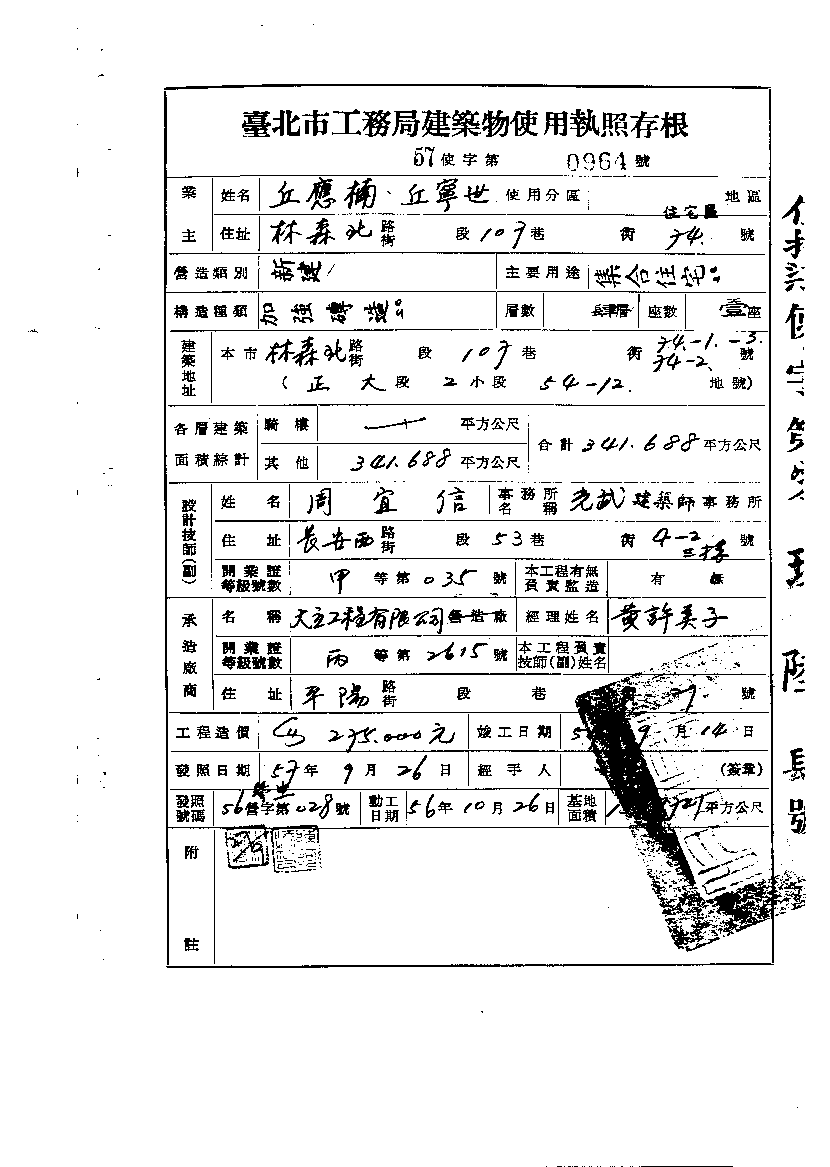 臺北市工務局建築物使用執照存根
57使字第 0964 號
業主 姓名 丘應楠、丘寧世 使用分區 住宅區 地區
住址 林森北路街 段 107巷 衖 74. 號
營造類別 新建 主要用途 集合住宅
構造種類 加強磚造 層數 層 座數 壹座
建築地址 本市 林森北路街 段 107巷 衖 74.-1.-3. 74-2. 號
(正大段 2小段 54-12. 地號)
各層建築面積綜計 騎樓 平方公尺 合計 341.688 平方公尺
其他 341.688 平方公尺
設計技師(副) 姓名 周宜信 事務所名稱 光武建築師事務所
住址 長安西路街 段 53巷 衖 4-2 三樓 號
開業證等級號數 甲等第035號 本工程有無負責監造 有 無
承造廠商 名稱 大立工程有限公司營造廠 經理姓名 黄許美子
開業證等級號數 丙等第2615號 本工程負責技師(副)姓名
住址 平陽路街 段 巷 27. 號
工程造價 275.000元 竣工日期 9月14日
發照日期 57年9月26日 經手人 (簽章)
發照號碼 56營字第028號 動工日期 56年10月26日 基地面積 平方公尺
附註